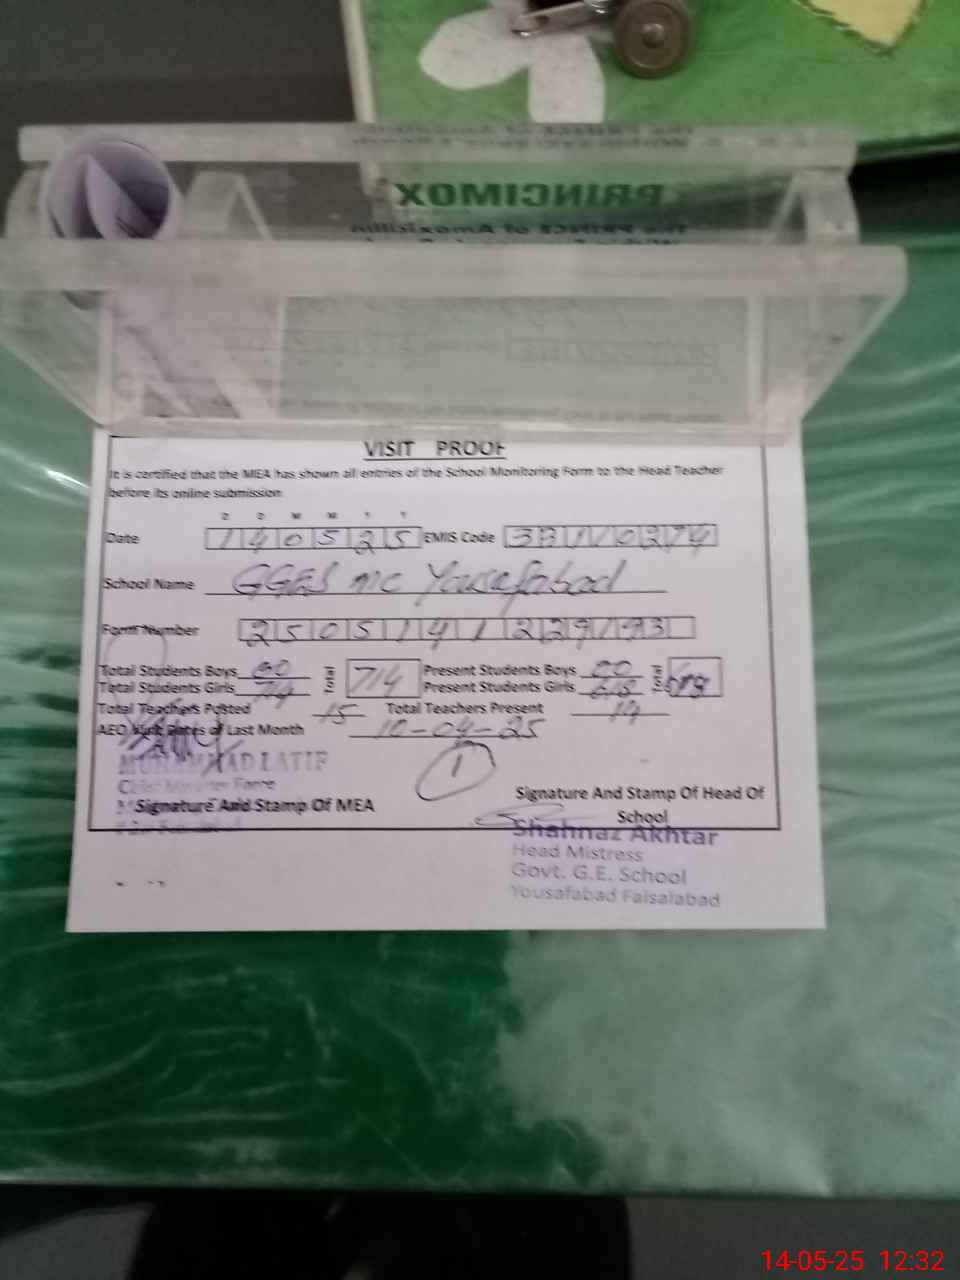 PRINCIMOX
VISIT PROOF
It is certified that the MEA has shown all entries of the School Monitoring Form to the Head Teacher
before its online submission
D D M M Y Y
Date 140525 EMIS Code 33110274
School Name GGES mc Yousafabad
Form Number 2505141229193
Total Students Boys 00 Total 714 Present Students Boys 00 Total
Total Students Girls Present Students Girls
Total Teachers Posted 15 Total Teachers Present 14
AEO Visit Dates of Last Month 10-04-25
MUHAMMAD LATIF
1
Signature And Stamp Of MEA
Signature And Stamp Of Head Of
School
Shahnaz Akhtar
Head Mistress
Govt. G.E. School
Yousafabad Faisalabad
14-05-25 12:32